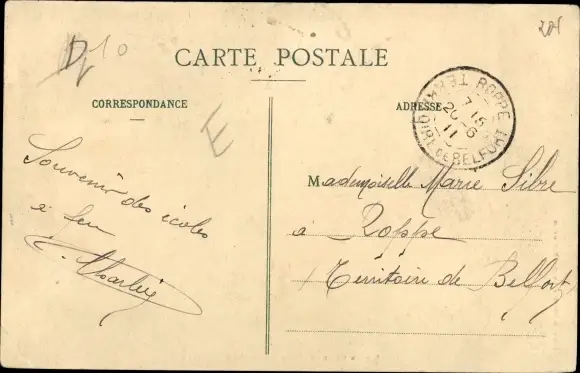 CARTE POSTALE
CORRESPONDANCE
ADRESSE
ROPPE
7 15
20-6
11
TERRIRE DE BELFORT
Souvenir des écoles
à feu
Mademoiselle Marie Sibre
à Roppe
Territoire de Belfort